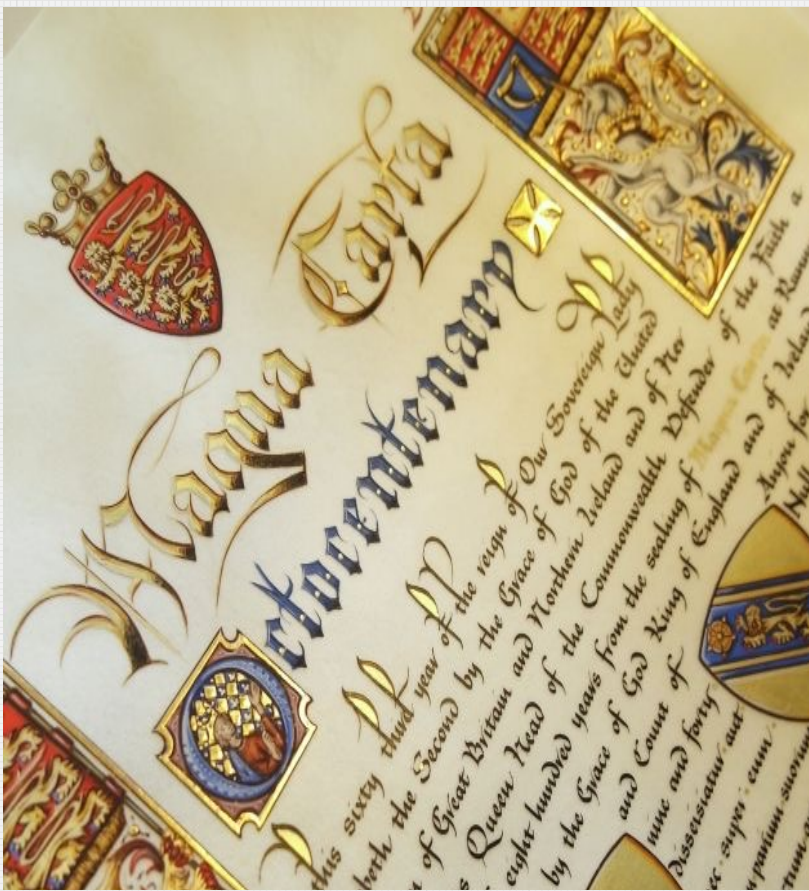 Magna Carta
Octocentenary
this sixty third year of the reign of Our Sovereign Lady
beth the Second by the Grace of God of the United
of Great Britain and Northern Ireland and of Her
Queen Head of the Commonwealth Defender of the Faith
eight hundred years from the sealing of Magna Carta at
by the Grace of God King of England and of
and Count of Anjou for
nine and forty
disseisiatur aut
super eum
parium